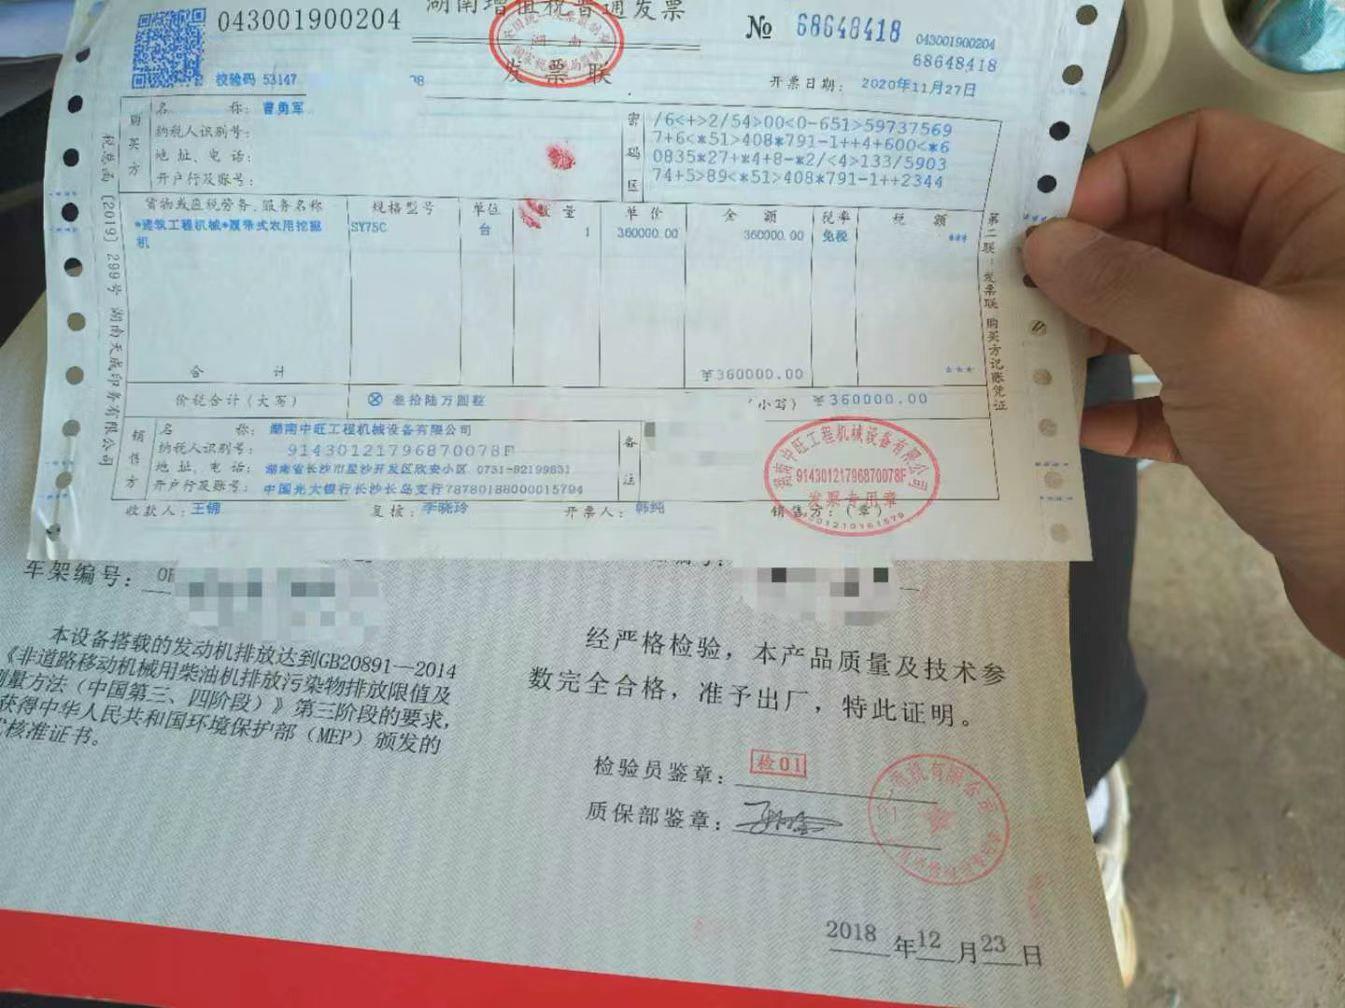 043001900204
湖南增值税普通发票
发票联
№ 68648418
043001900204
68648418
校验码 53147
开票日期: 2020年11月27日
税总函[2019]299号 湖南天成印务有限公司
购买方
名 称: 曹勇军
纳税人识别号:
地址、电话:
开户行及账号:
密码区
/6<+>2/54>00<0-651>59737569
7+6<*51>408*791-1++4+600<*6
0835*27+*4+8-*2/<4>133/5903
74+5>89<*51>408*791-1++2344
货物或应税劳务、服务名称 规格型号 单位 数量 单价 金额 税率 税额
*建筑工程机械*履带式农用挖掘机 SY75C 台 1 360000.00 360000.00 免税 ***
合 计 ¥360000.00 ***
价税合计(大写) ⊗ 叁拾陆万圆整 (小写) ¥360000.00
销售方
名 称: 湖南中旺工程机械设备有限公司
纳税人识别号: 91430121796870078F
地址、电话: 湖南省长沙市星沙开发区欣安小区 0731-82199831
开户行及账号: 中国光大银行长沙长岛支行78780188000015794
备注
收款人: 王锦 复核: 李晓玲 开票人: 韩纯 销售方:(章)
第二联:发票联 购买方记账凭证
湖南中旺工程机械设备有限公司
91430121796870078F
发票专用章
车架编号:
本设备搭载的发动机排放达到GB20891—2014
《非道路移动机械用柴油机排放污染物排放限值及
测量方法(中国第三、四阶段)》第三阶段的要求,
获得中华人民共和国环境保护部(MEP)颁发的
核准证书。
经严格检验,本产品质量及技术参
数完全合格,准予出厂,特此证明。
检验员鉴章: 检01
质保部鉴章:
2018年12月23日